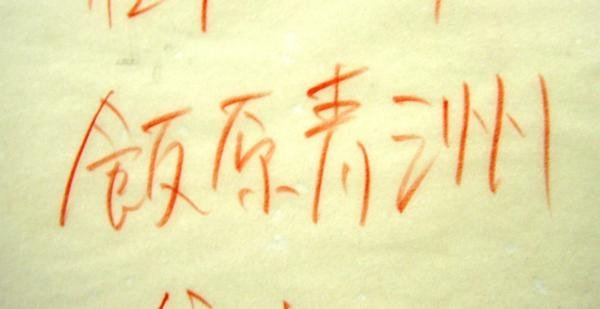 飯原青洲